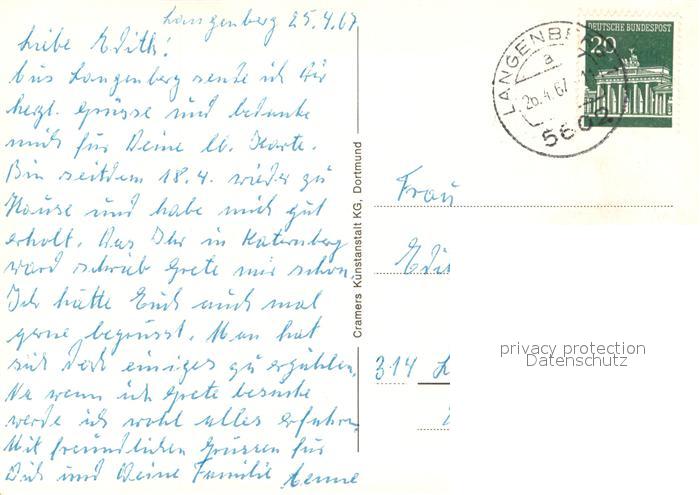 Langenberg 25.4.67
Liebe Edith!
Aus Langenberg sende ich Dir
herzl. Grüsse und bedanke
mich für Deine lb. Karte.
Bin seitdem 18.4. wieder zu
Hause und habe mich gut
erholt. Das Ihr in Katernberg
ward schrieb Grete mir schon
Ich hätte Euch auch mal
gerne begrüsst. Man hat
sich doch einiges zu erzählen.
Na wenn ich Grete besuche
werde ich wohl alles erfahren
Mit freundlichen Grüssen für
Dich und Deine Familie
Cramers Kunstanstalt KG, Dortmund
DEUTSCHE BUNDESPOST
20
LANGENBE
a
26.4.67
5602
Frau
Edi
314 L
privacy protection
Datenschutz